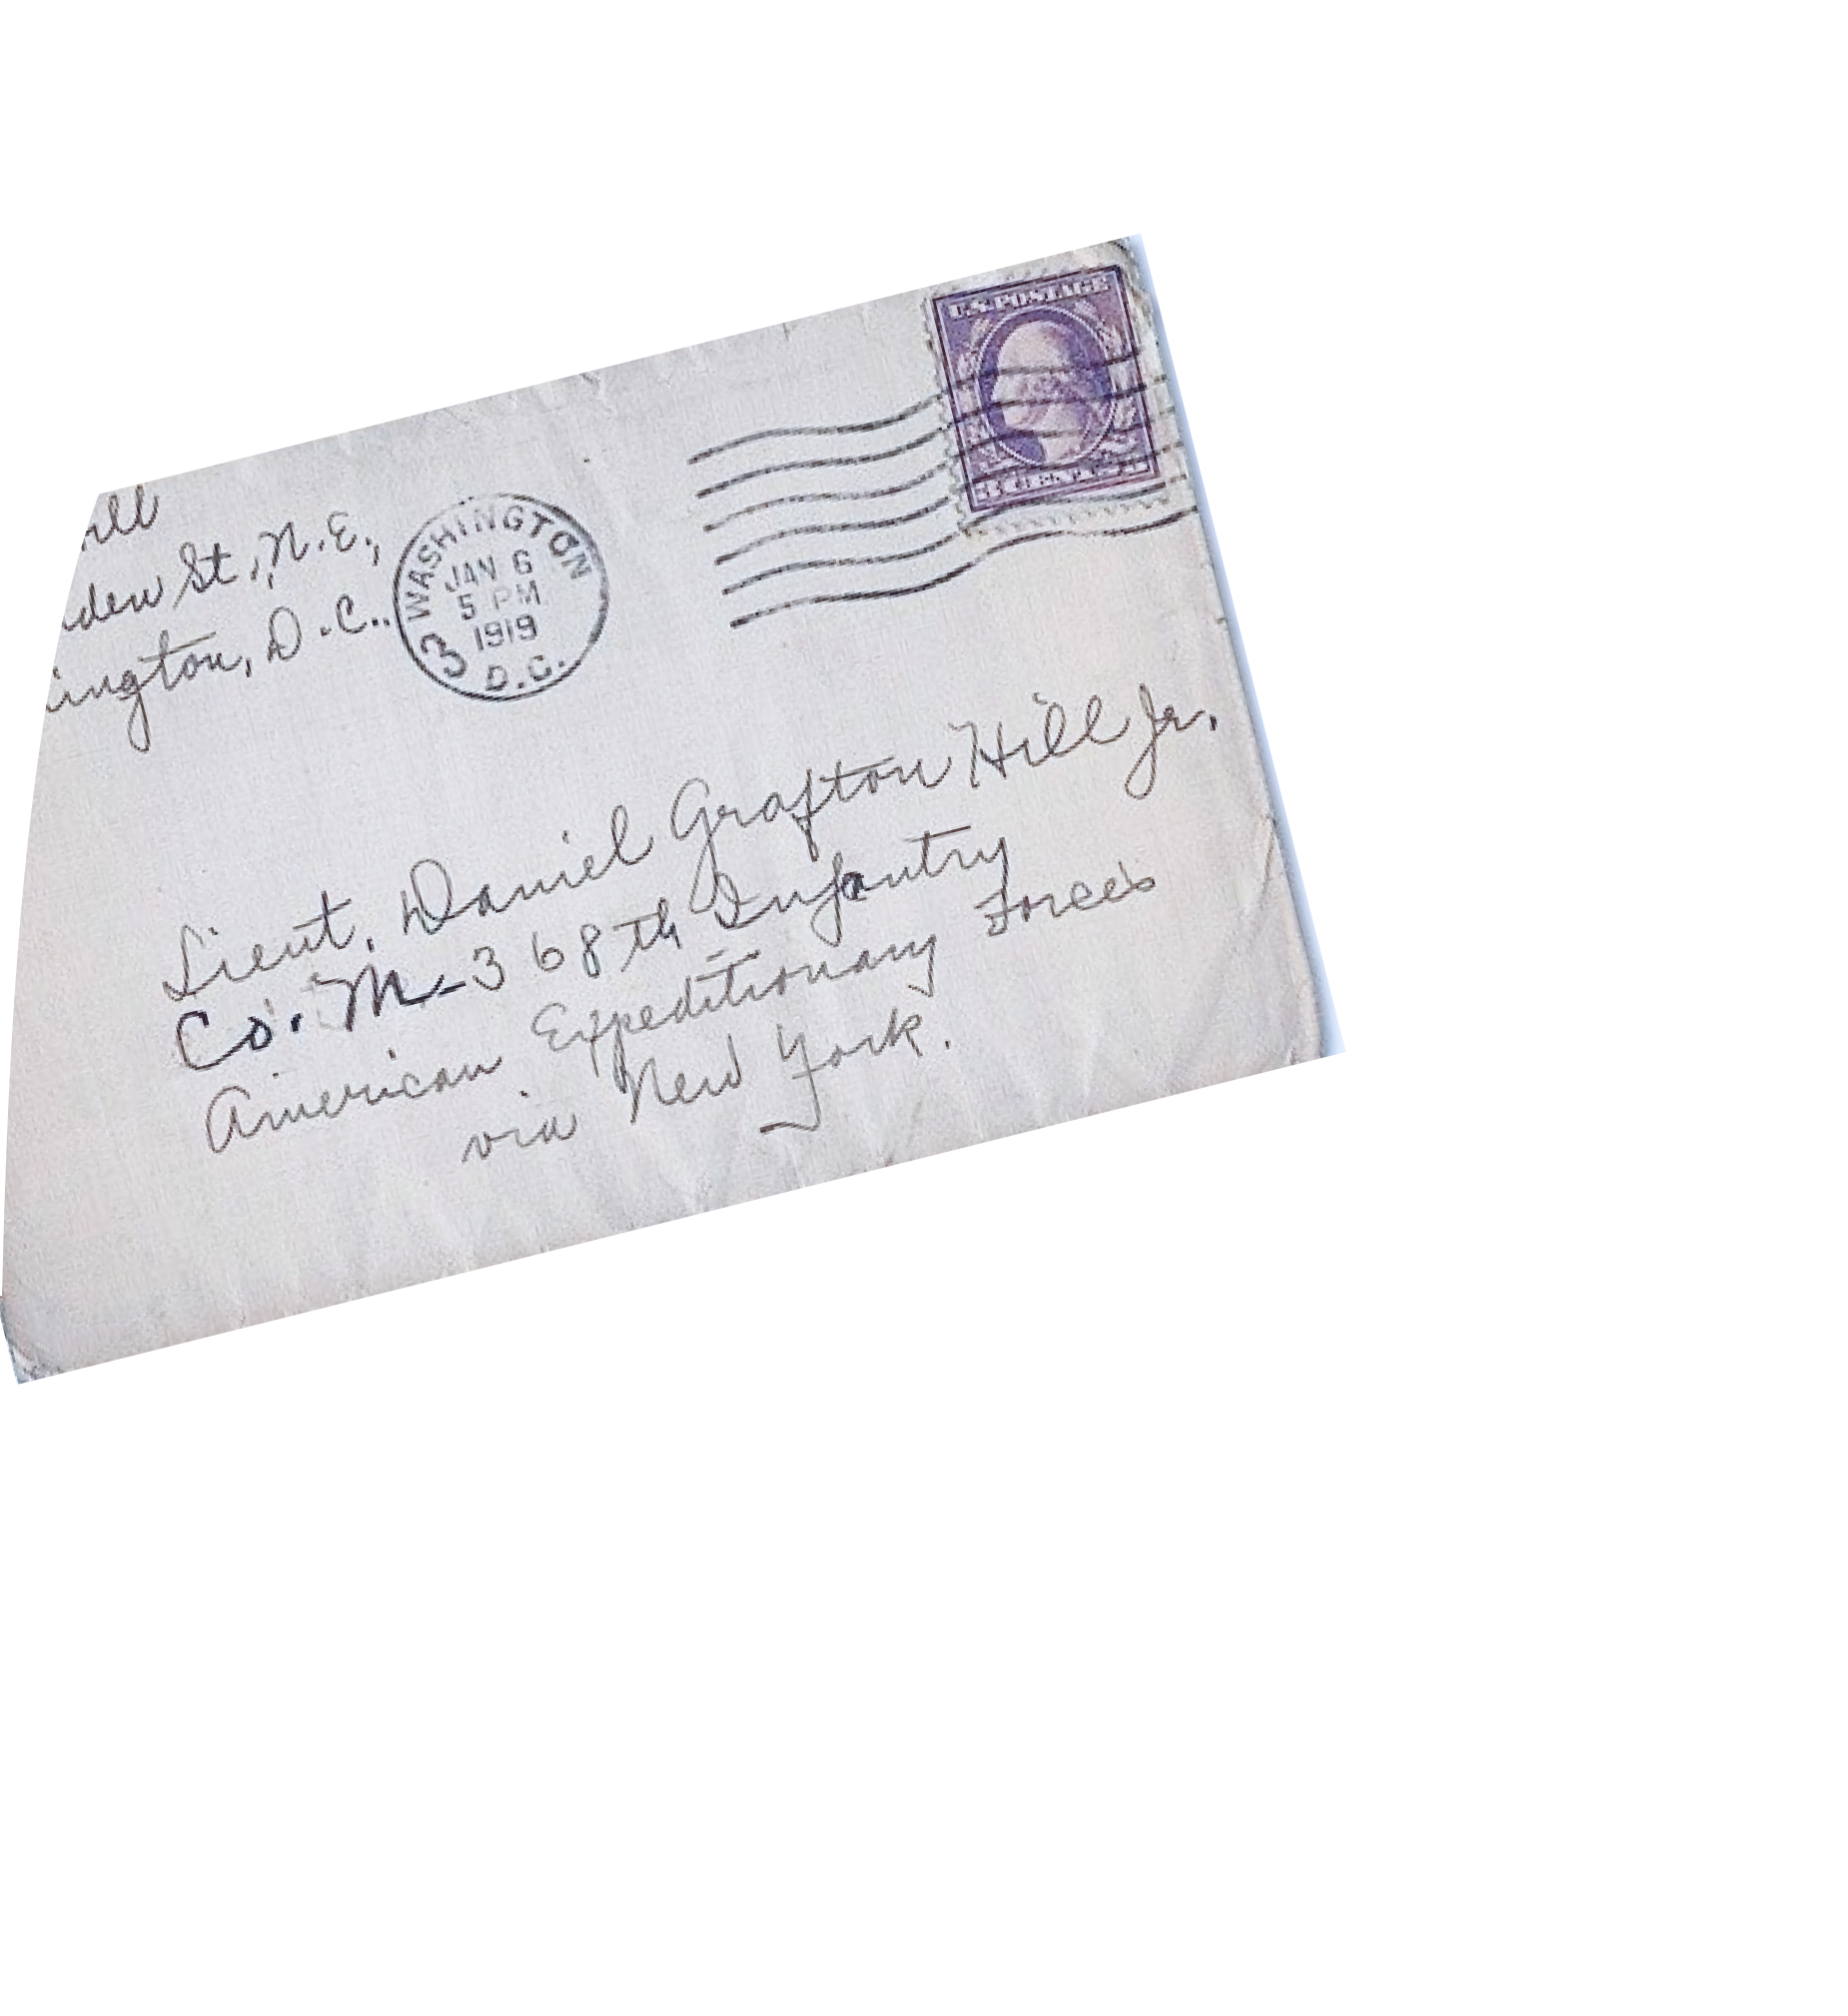 St., N.E.,
D.C.,
WASHINGTON
JAN 6
5 PM
1919
3
D.C.
U.S. POSTAGE
Lieut. Daniel Grafton Hill Jr.
Co. M-368th Infantry
American Expeditionary Forces
via New York.